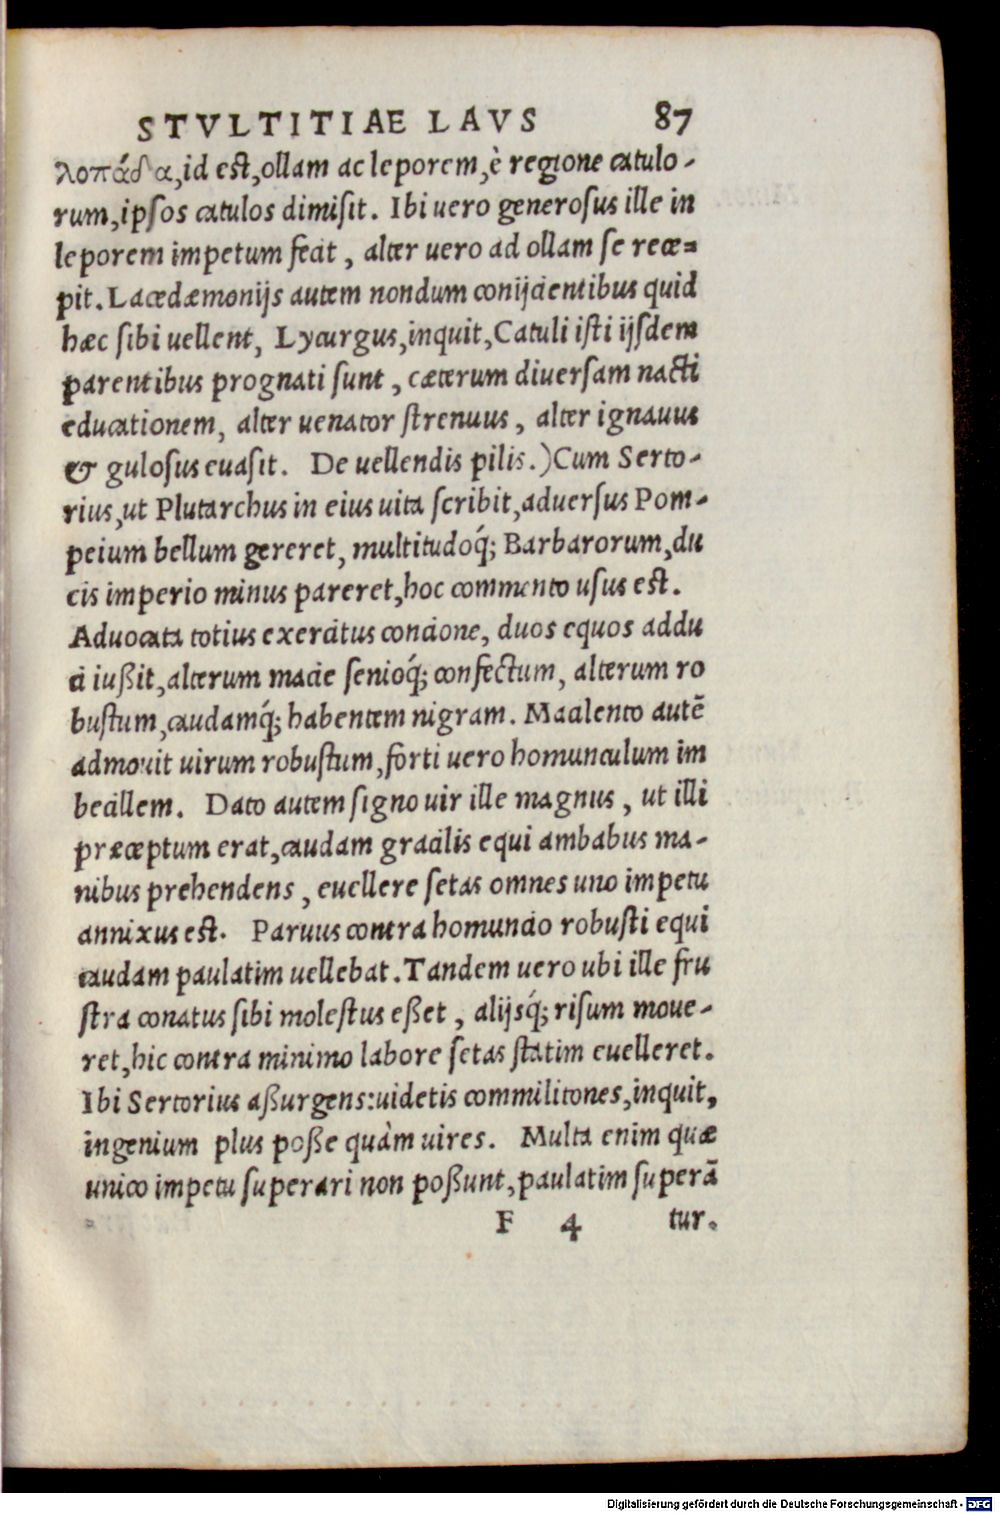 STVLTITIAE LAVS 87
λοπάδα, id est, ollam ac leporem, è regione catulo-
rum, ipsos catulos dimisit. Ibi uero generosus ille in
leporem impetum fecit, alter uero ad ollam se rece=
pit. Lacedæmonijs autem nondum conijcientibus quid
hæc sibi uellent, Lycurgus, inquit, Catuli isti ijsdem
parentibus prognati sunt, cæterum diuersam nacti
educationem, alter uenator strenuus, alter ignauus
& gulosus euasit. De uellendis pilis.) Cum Serto-
rius, ut Plutarchus in eius uita scribit, aduersus Pom-
peium bellum gereret, multitudoq́; Barbarorum, du
cis imperio minus pareret, hoc commento usus est.
Aduocata totius exercitus concione, duos equos addu
ci iußit, alterum macie senioq́; confectum, alterum ro
bustum, caudamq́; habentem nigram. Macilento autē
admouit uirum robustum, forti uero homunculum im
becillem. Dato autem signo uir ille magnus, ut illi
præceptum erat, caudam gracilis equi ambabus ma-
nibus prehendens, euellere setas omnes uno impetu
annixus est. Paruus contra homuncio robusti equi
caudam paulatim uellebat. Tandem uero ubi ille fru
stra conatus sibi molestus eßet, alijsq́; risum moue-
ret, hic contra minimo labore setas statim euelleret.
Ibi Sertorius aßurgens: uidetis commilitones, inquit,
ingenium plus poße quàm uires. Multa enim quæ
unico impetu superari non poßunt, paulatim superā
F 4 tur.
Digitalisierung gefördert durch die Deutsche Forschungsgemeinschaft - DFG